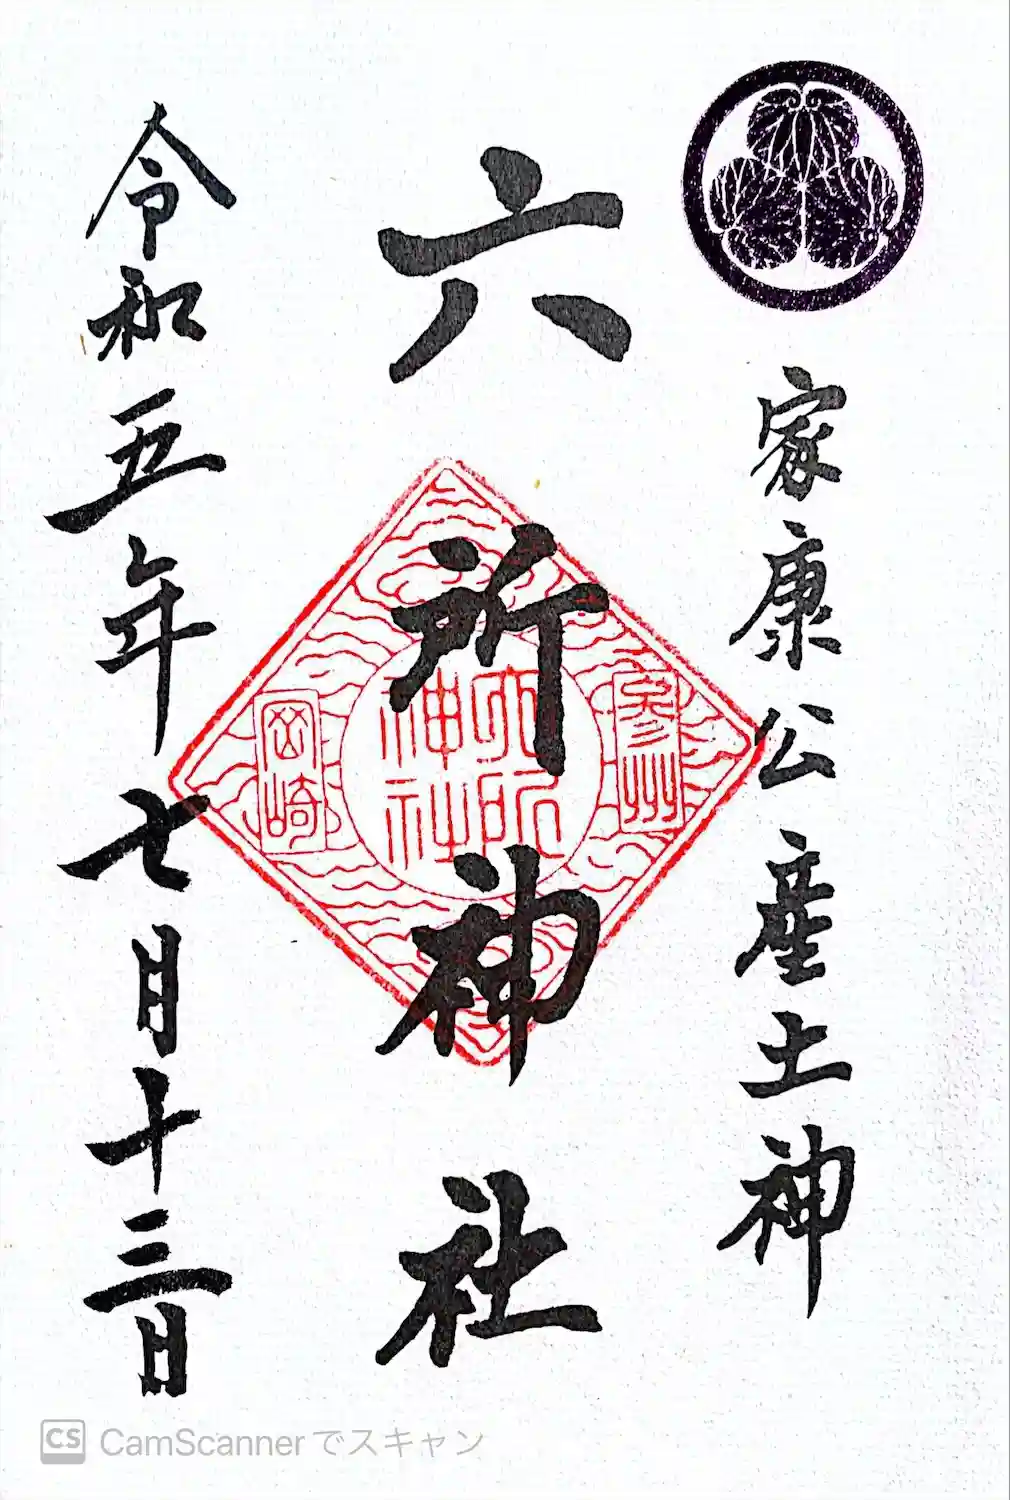 家康公産土神
六所神社
参州
六所
神社
岡崎
令和五年七月十三日
CS CamScannerでスキャン